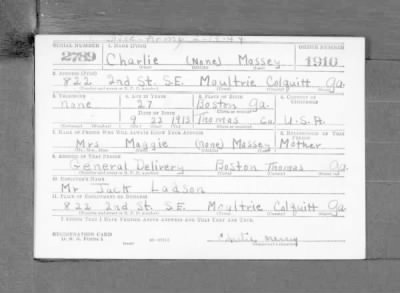 SERIAL NUMBER 1. NAME (Print) ORDER NUMBER
2789 Charlie (None) Massey 1910
(First) (Middle) (Last)
2. ADDRESS (Print)
822 2nd St. S.E. Moultrie Colquitt Ga.
3. TELEPHONE 4. AGE IN YEARS 5. PLACE OF BIRTH 6. COUNTRY OF CITIZENSHIP
none 27 Boston Ga.
DATE OF BIRTH
9 22 1913 Thomas Co. U.S.A.
7. NAME OF PERSON WHO WILL ALWAYS KNOW YOUR ADDRESS 8. RELATIONSHIP OF THAT PERSON
Mrs Maggie (None) Massey Mother
9. ADDRESS OF THAT PERSON
General Delivery Boston Thomas Ga.
10. EMPLOYER'S NAME
Mr Jack Ladson
11. PLACE OF EMPLOYMENT OR BUSINESS
822 2nd St. S.E. Moultrie Colquitt Ga
I AFFIRM THAT I HAVE VERIFIED ABOVE ANSWERS AND THAT THEY ARE TRUE.
REGISTRATION CARD
D. S. S. Form 1